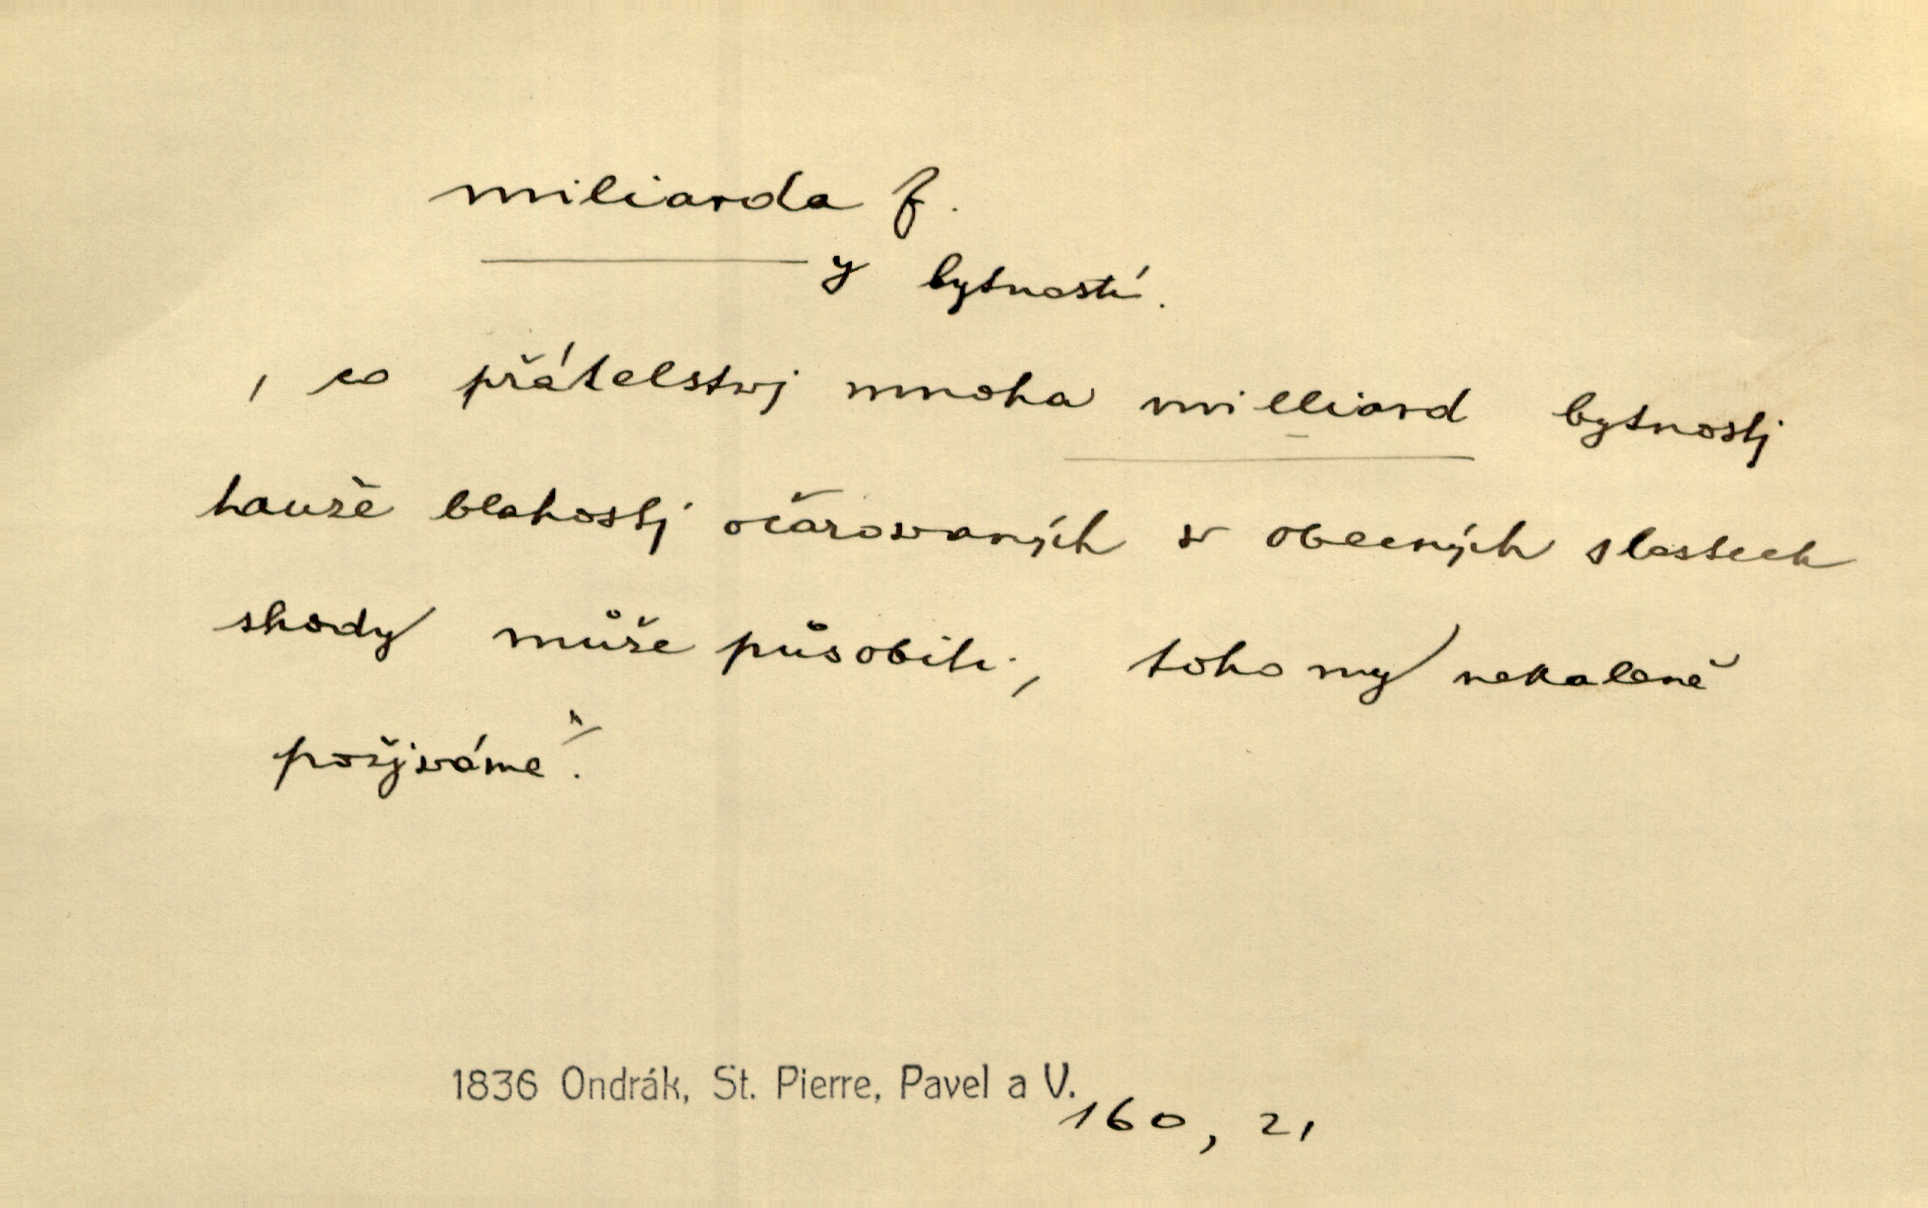 miliarda f.
y bytností.
, co přátelstwj mnoha milliard bytnostj
hauře blahostj očarowaných w obecných slastech
shody může působiti, toho my nekaleně
požjwáme.
1836 Ondrák, St. Pierre, Pavel a V.
160, 21